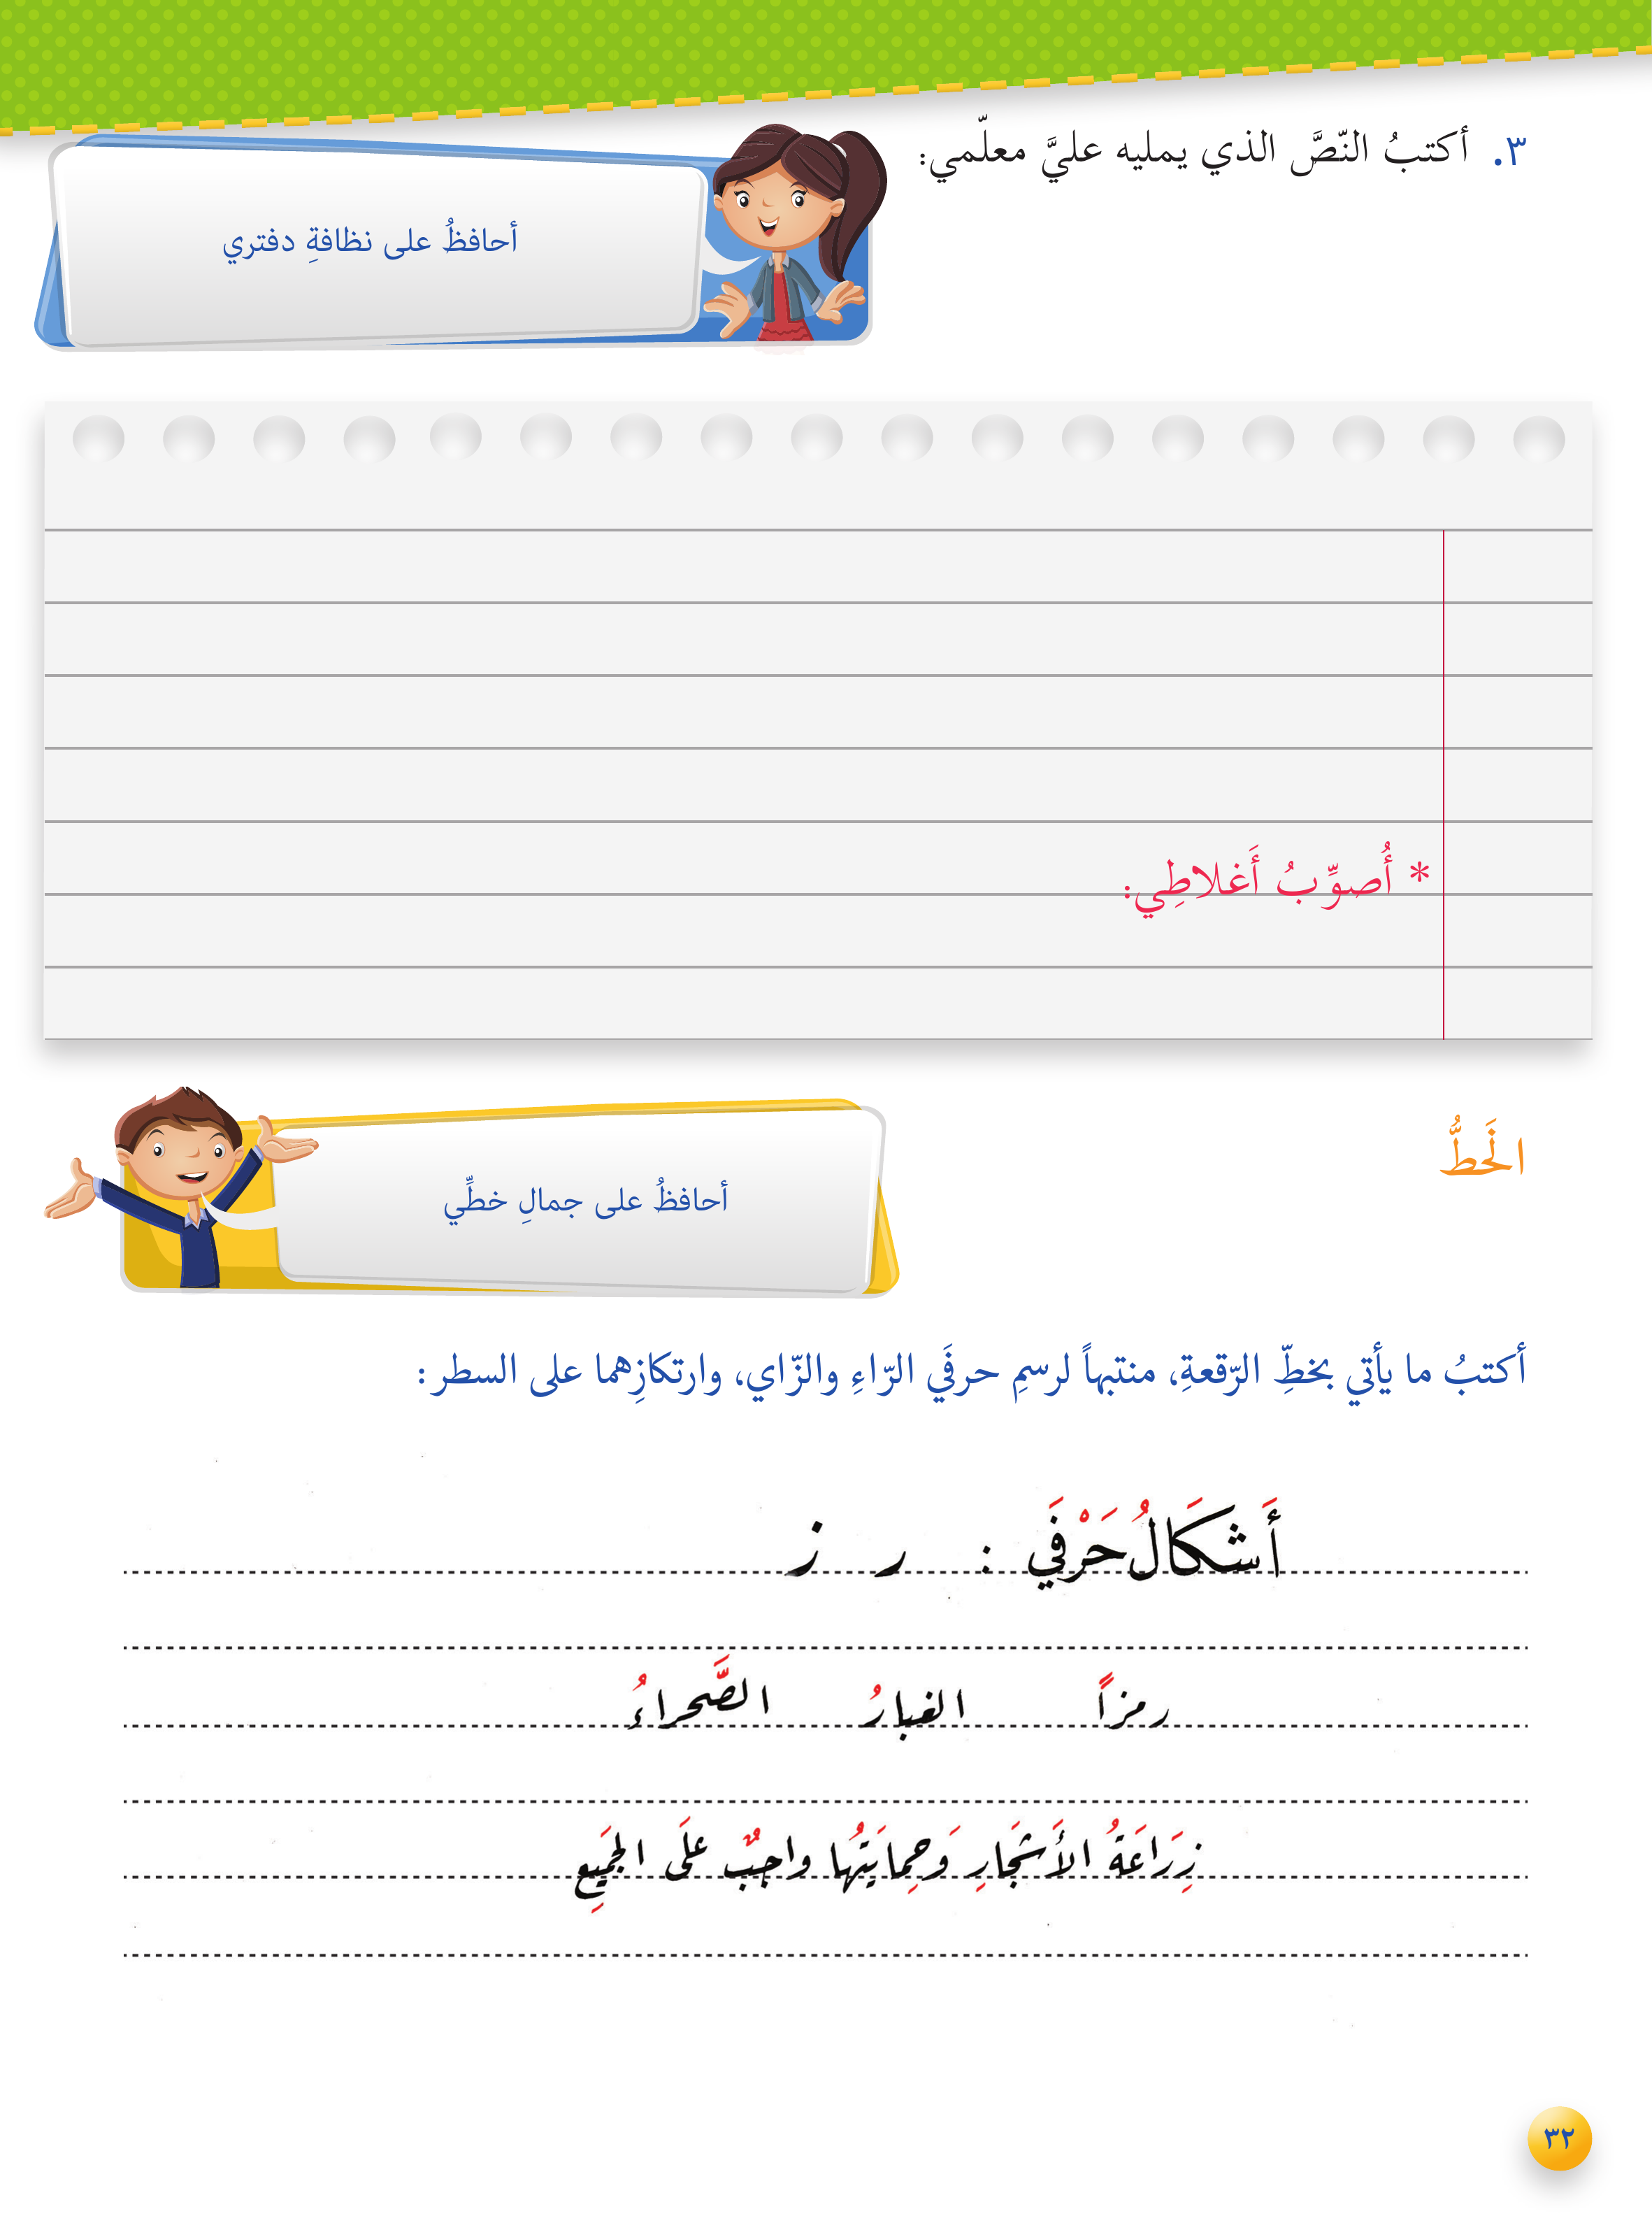 ٣. أكتبُ النّصَّ الذي يمليه عليَّ معلّمي:
أحافظُ على نظافةِ دفتري
* أُصوِّبُ أَغلاطِي:
الخَطُّ
أحافظُ على جمالِ خطِّي
أكتبُ ما يأتي بخطِّ الرّقعةِ، منتبهاً لرسمِ حرفَي الرّاءِ والزّاي، وارتكازِهما على السطر :
أَشكَالُ حَرْفَي : ر ز
رمزاً الغبارُ الصَّحراءُ
زِرَاعَةُ الأَشجَارِ وَحِمايَتُها واجبٌ علَى الجَمِيعِ
٣٢